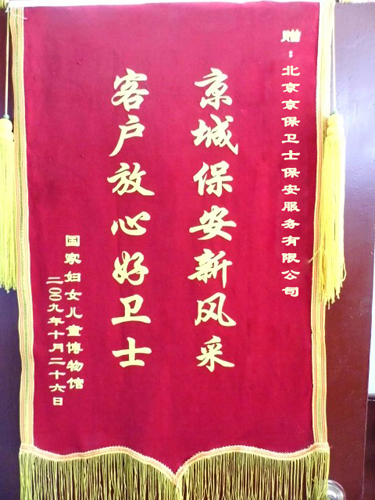 赠：北京京保卫士保安服务有限公司
京城保安新风采
客户放心好卫士
国家妇女儿童博物馆
二〇〇九年十月二十六日